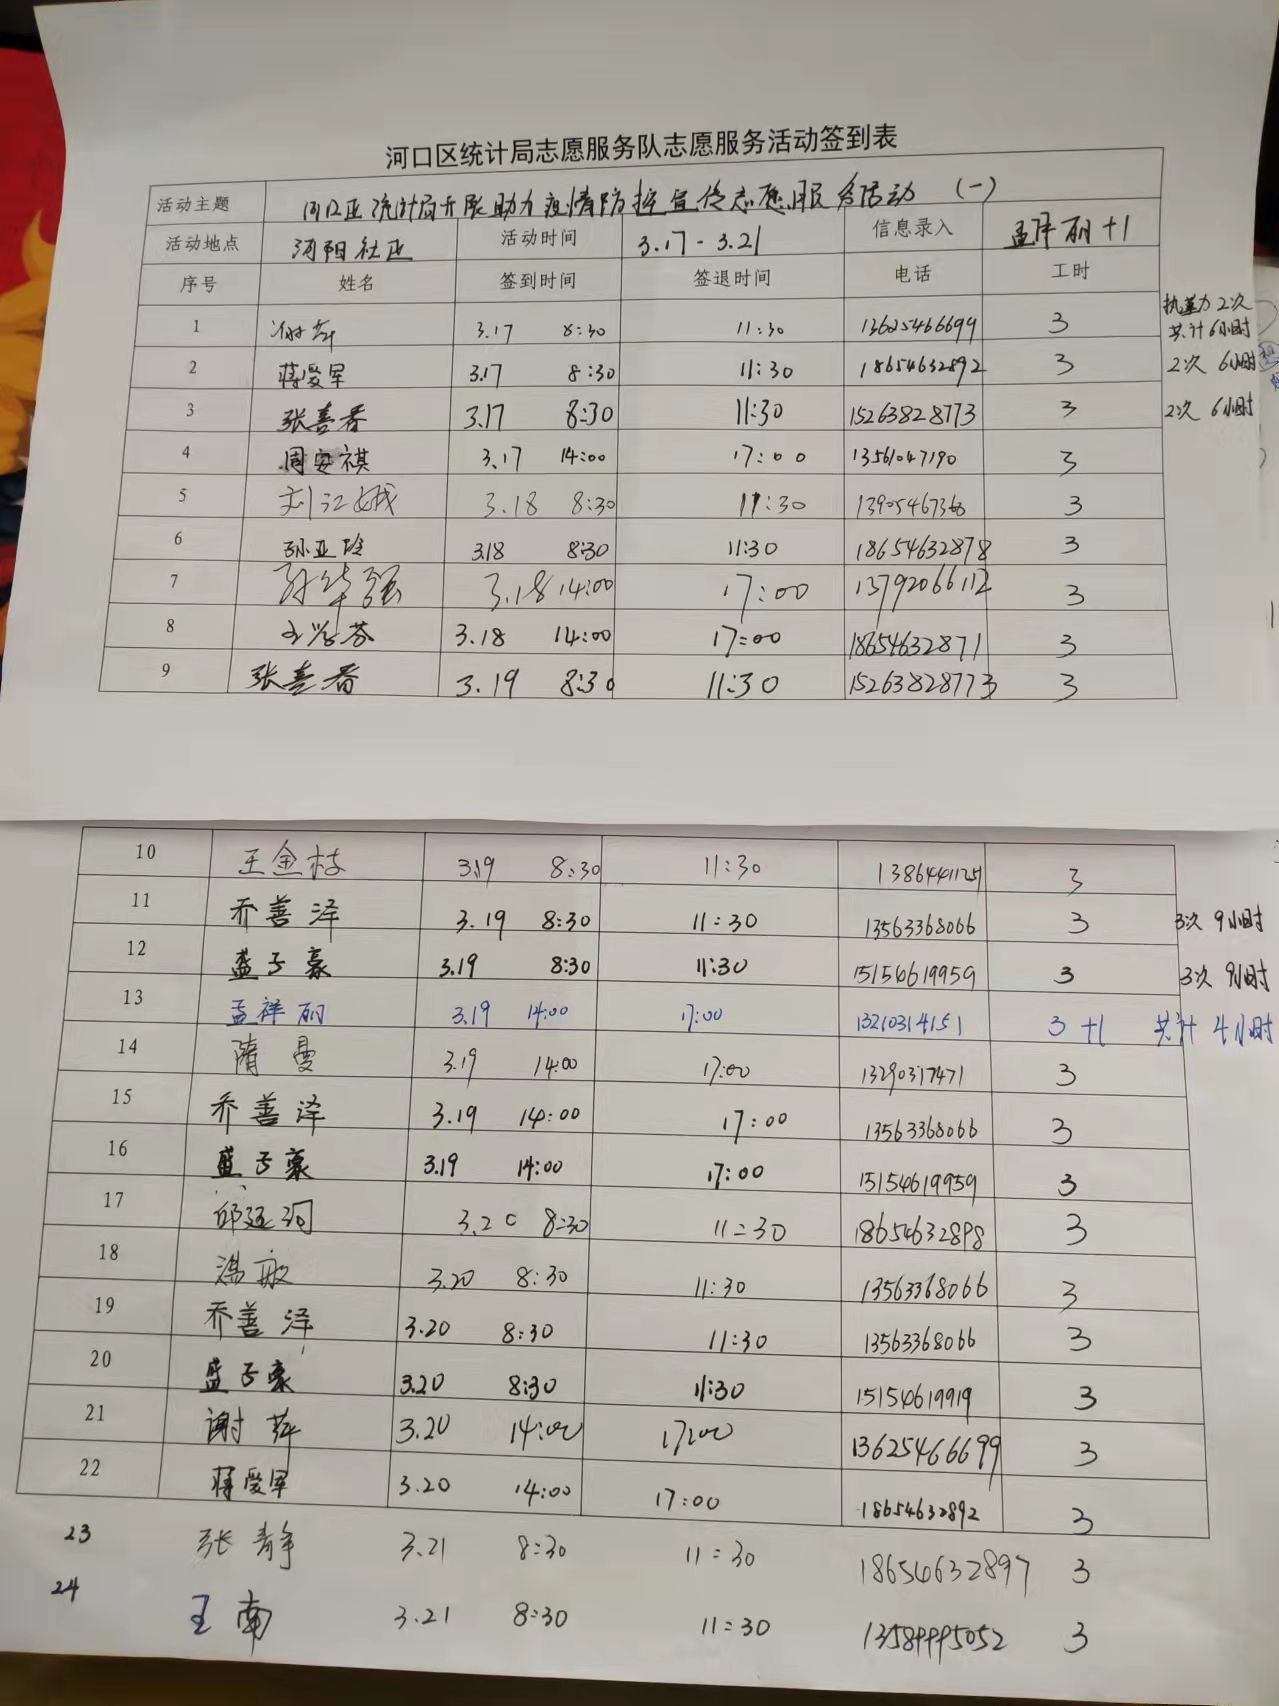 河口区统计局志愿服务队志愿服务活动签到表
活动主题 河口区统计局开展助力疫情防控宣传志愿服务活动 (一)
活动地点 河阳社区 活动时间 3.17-3.21 信息录入 孟祥丽+1
序号 姓名 签到时间 签退时间 电话 工时
1 谢萍 3.17 8:30 11:30 13625466699 3 执勤 2次
共计6小时
2 蒋爱军 3.17 8:30 11:30 18654632892 3 2次 6小时
3 张喜香 3.17 8:30 11:30 15263828773 3 2次 6小时
4 周安祺 3.17 14:00 17:00 13561047190 3
5 刘江娥 3.18 8:30 11:30 13905467360 3
6 孙亚玲 3.18 8:30 11:30 18654632878 3
7 3.18 14:00 17:00 13792066112 3
8 王学芬 3.18 14:00 17:00 18654632871 3
9 张喜香 3.19 8:30 11:30 15263828773 3
10 王金枝 3.19 8:30 11:30 13864441251 3
11 乔善泽 3.19 8:30 11:30 13563368066 3 3次 9小时
12 盛子豪 3.19 8:30 11:30 15154619959 3 3次 9小时
13 孟祥丽 3.19 14:00 17:00 13210314151 3 +1 共计 4小时
14 隋曼 3.19 14:00 17:00 13290317471 3
15 乔善泽 3.19 14:00 17:00 13563368066 3
16 盛子豪 3.19 14:00 17:00 15154619959 3
17 3.20 8:30 11:30 18654632898 3
18 冯敏 3.20 8:30 11:30 13563368066 3
19 乔善泽 3.20 8:30 11:30 13563368066 3
20 盛子豪 3.20 8:30 11:30 15154619919 3
21 谢萍 3.20 14:00 17:00 13625466699 3
22 蒋爱军 3.20 14:00 17:00 18654632892 3
23 张静 3.21 8:30 11:30 18654632897 3
24 王南 3.21 8:30 11:30 13589995052 3